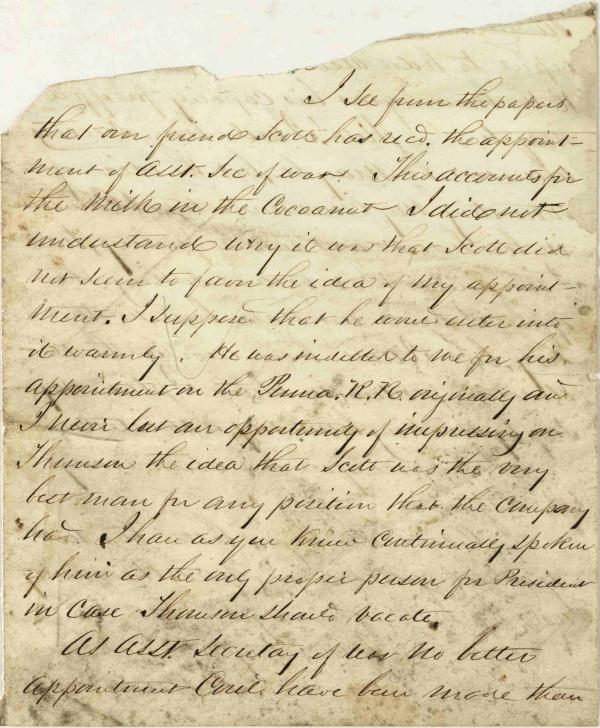 I see from the papers
that our friend Scott has recd. the appoint-
ment of Asst. Sec of war. This accounts for
the Milk in the Cocoanut I did not
understand why it was that Scott did
not seem to favor the idea of my appoint-
ment. I supposed that he would enter into
it warmly. He was indebted to me for his
appointment on the Penna. R.R. originally and
I never lost an opportunity of impressing on
Thomson the idea that Scott was the very
best man for any position that the company
had. I have as you know continually spoken
of him as the only proper person for President
in case Thomson should vacate.
As Asst. Secretary of war no better
appointment could have been made than